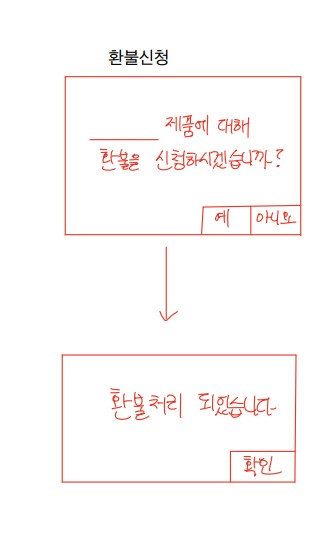 환불신청
______ 제품에 대해
환불을 신청하시겠습니까?
예 아니요
환불처리 되었습니다
확인